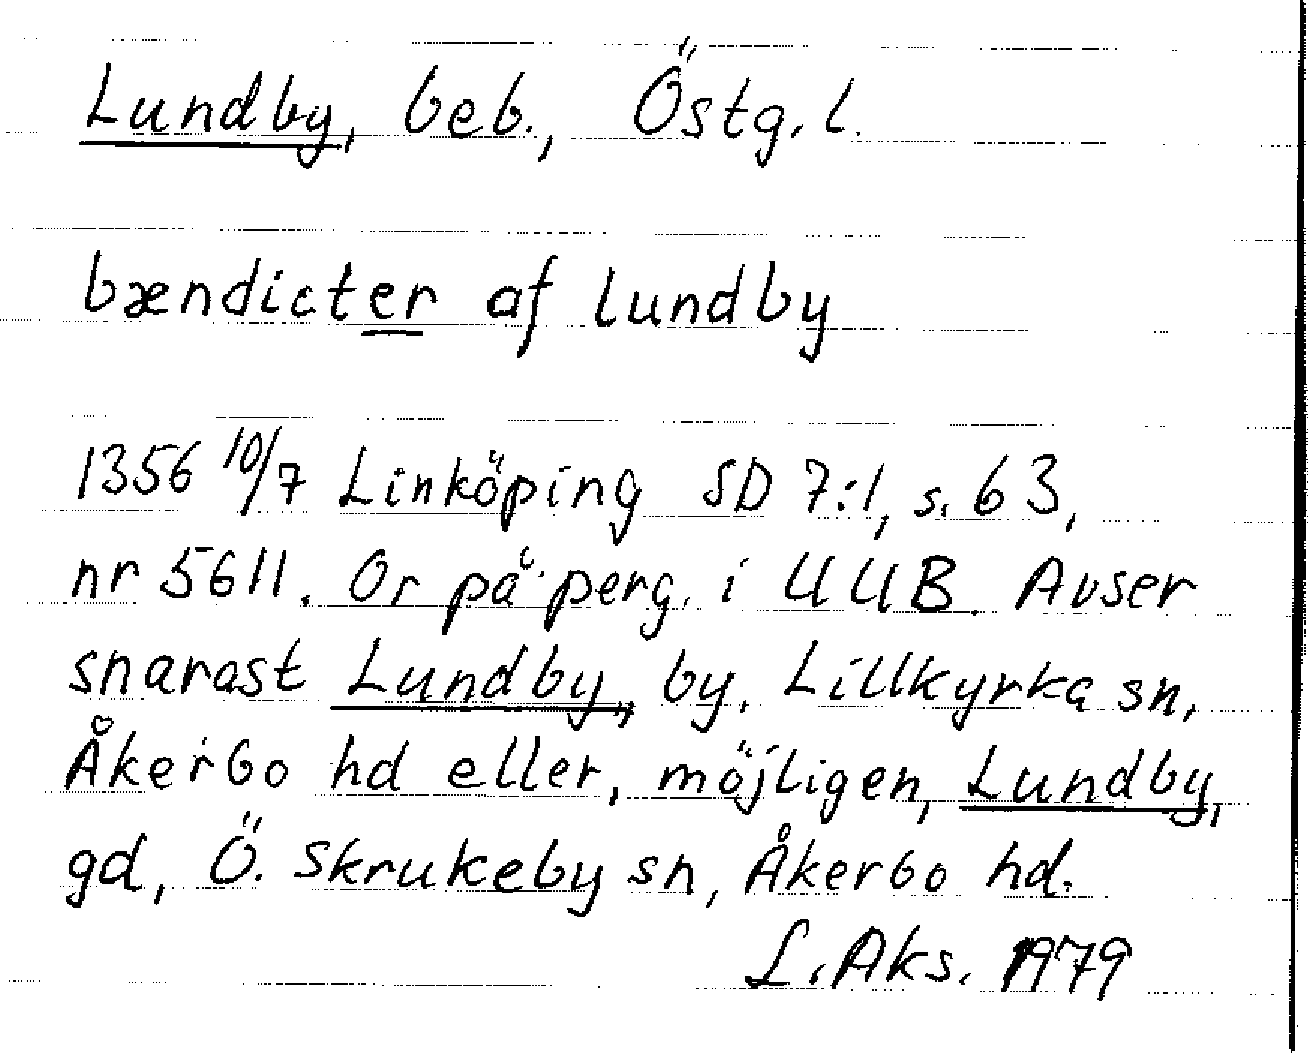 Lundby, beb., Östg. l.
bændicter af lundby
1356 10/7 Linköping SD 7:1, s. 63,
nr 5611. Or på perg. i UUB. Avser
snarast Lundby, by, Lillkyrka sn,
Åkerbo hd eller, möjligen, Lundby,
gd, Ö. Skrukeby sn, Åkerbo hd.
L. Aks. 1979